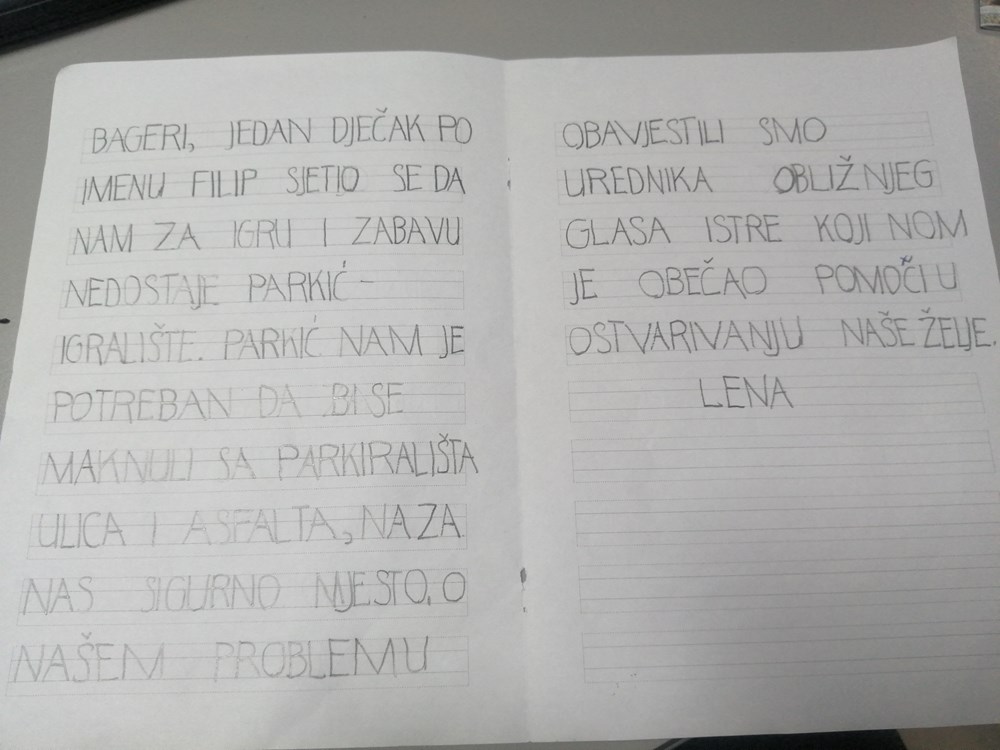 BAGERI, JEDAN DJEČAK PO
IMENU FILIP SJETIO SE DA
NAM ZA IGRU I ZABAVU
NEDOSTAJE PARKIĆ-
IGRALIŠTE. PARKIĆ NAM JE
POTREBAN DA BI SE
MAKNULI SA PARKIRALIŠTA
ULICA I ASFALTA, NA ZA
NAS SIGURNO MJESTO. O
NAŠEM PROBLEMU
OBAVJESTILI SMO
UREDNIKA OBLIŽNJEG
GLASA ISTRE KOJI NOM
JE OBEČAO POMOČI U
OSTVARIVANJU NAŠE ŽELJE.
LENA